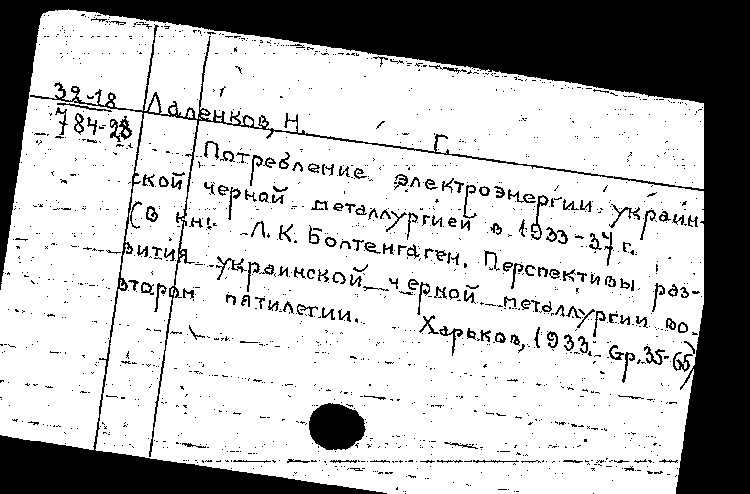 32-18
784-23
Лаленков, Н. Г.
Потребление электроэнергии украин-
ской черной металлургией в 1933-37 г.
(В кн: Л. К. Болтенгаген. Перспективы раз-
вития украинской черной металлургии во
втором пятилетии. Харьков, 1933. Стр. 35-65)